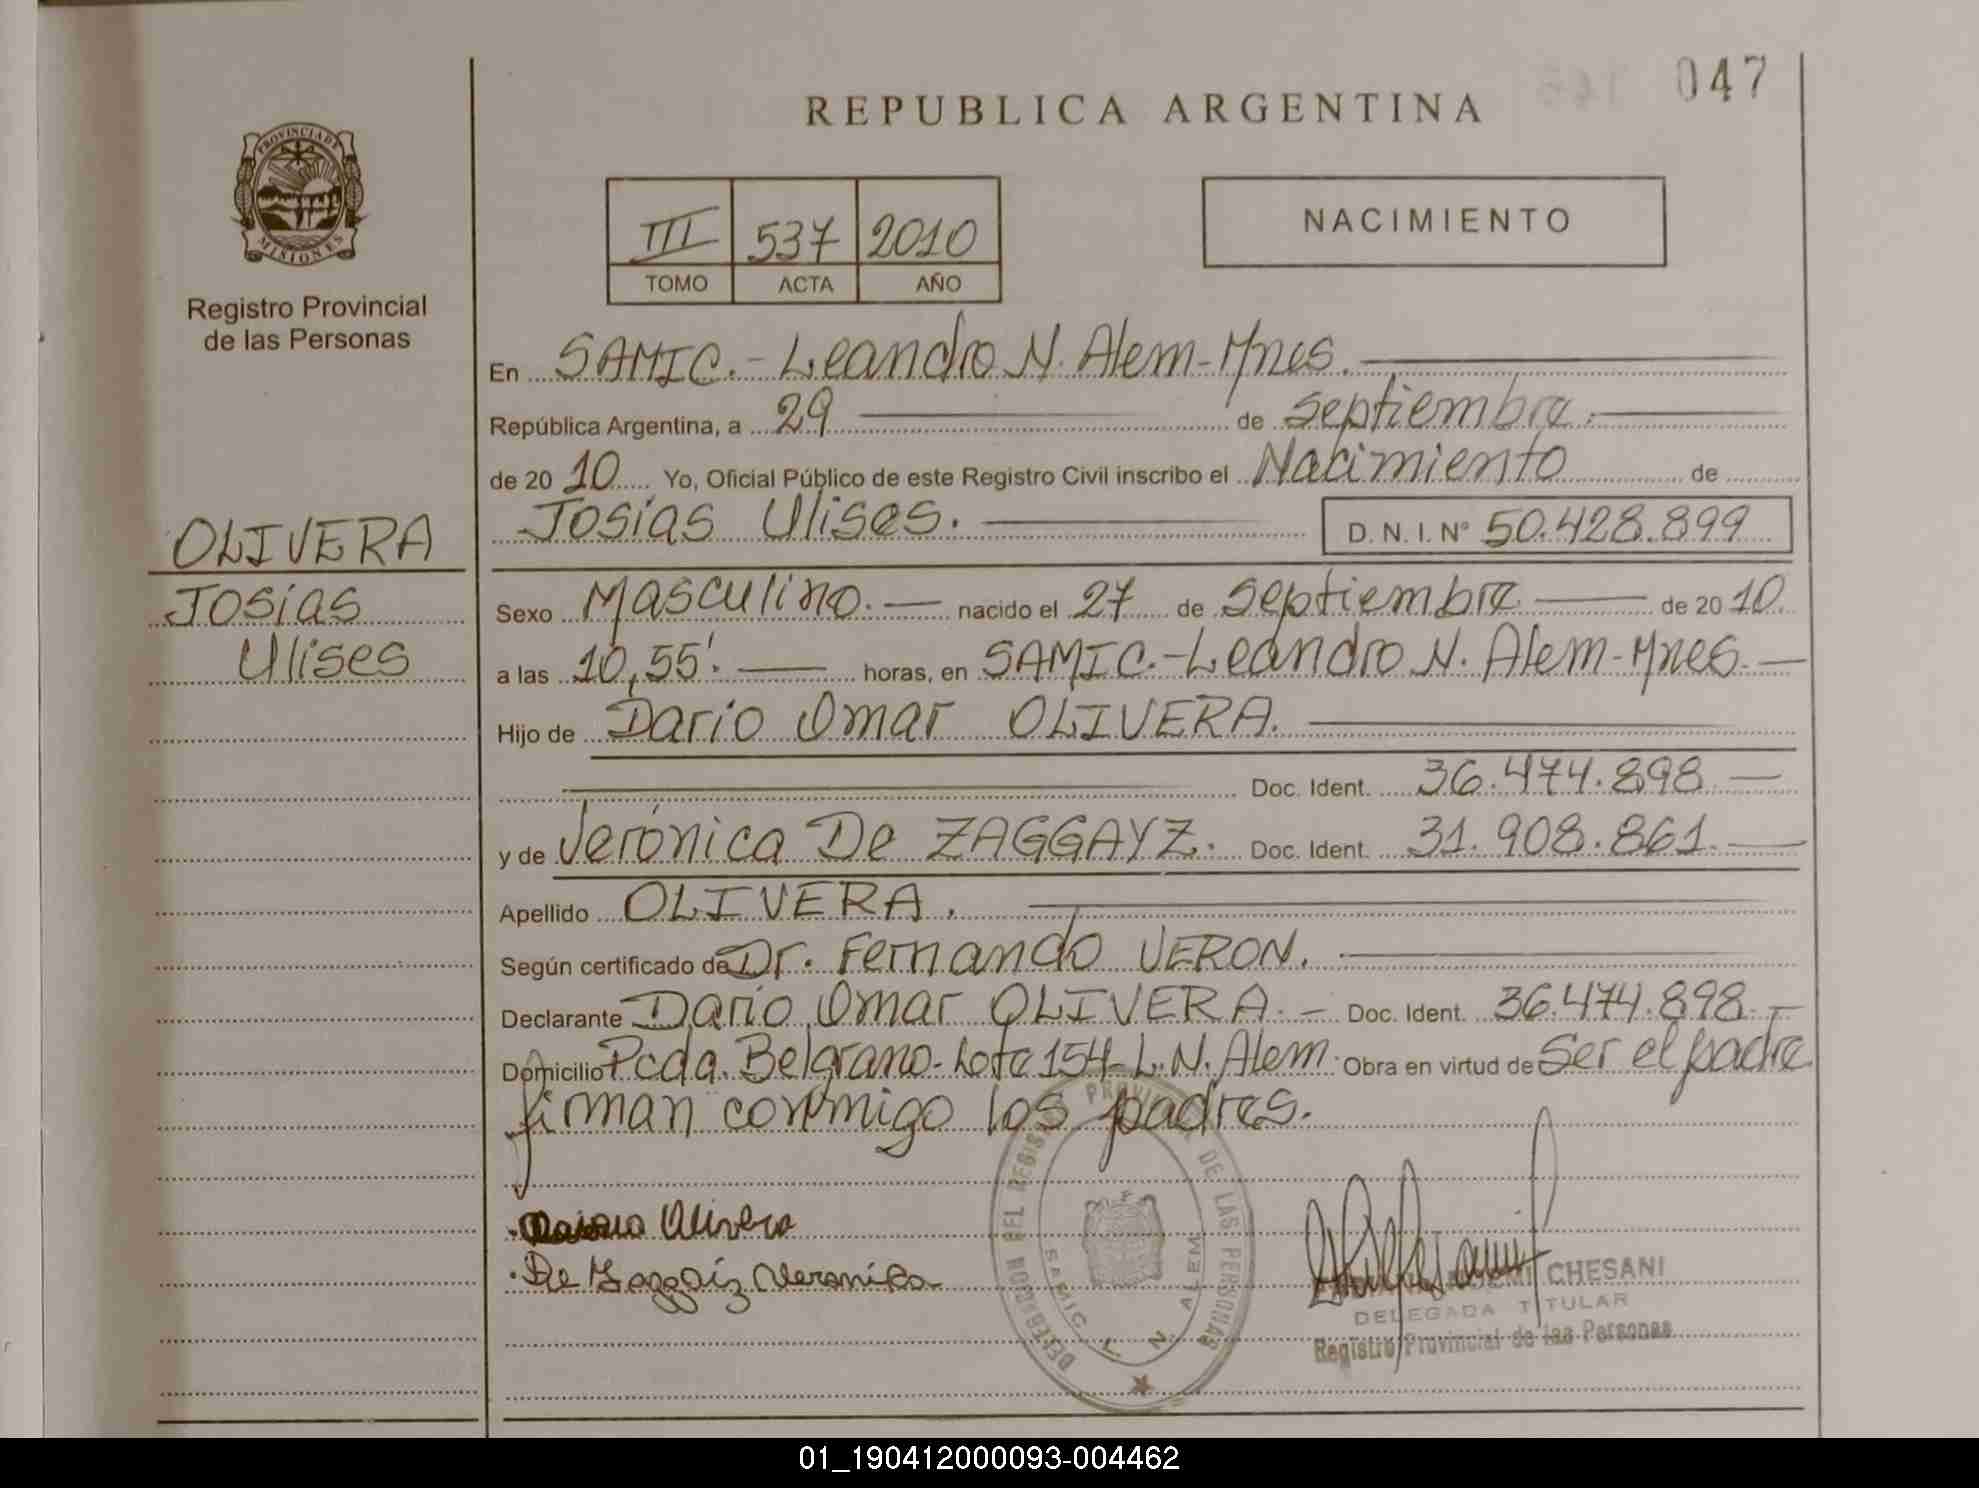 047
REPUBLICA ARGENTINA
PROVINCIA DE
MISIONES
Registro Provincial
de las Personas
III 537 2010
TOMO ACTA AÑO
NACIMIENTO
En SAMIC.- Leandro N. Alem - Mnes.
República Argentina, a 29 de septiembre.
de 20 10 Yo, Oficial Público de este Registro Civil inscribo el Nacimiento de
Josías Ulises. D. N. I. Nº 50.428.899
OLIVERA
Josías
Ulises
Sexo Masculino. nacido el 27 de septiembre de 20 10
a las 10,55'. horas, en SAMIC.- Leandro N. Alem - Mnes.
Hijo de Dario Omar OLIVERA.
Doc. Ident. 36.474.898
y de Verónica De ZAGGAYZ. Doc. Ident. 31.908.861.
Apellido OLIVERA.
Según certificado de Dr. Fernando VERON.
Declarante Dario Omar OLIVERA. - Doc. Ident. 36.474.898. -
Domicilio Pcda. Belgrano - Lote 154 - L. N. Alem. Obra en virtud de Ser el padre
firman conmigo los padres.
Olivera
De Zaggaiz Veronica
DELEGACION DEL REGISTRO PROVINCIAL DE LAS PERSONAS
SAMIC L. N. ALEM
CHESANI
DELEGADA TITULAR
Registro Provincial de las Personas
01_190412000093-004462